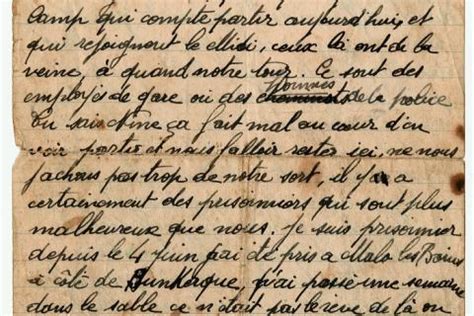 camp qui compte partir aujourd'hui et
qui rejoignent le Midi, ceux là ont de la
veine, à quand notre tour. Ce sont des
employés de gare ou des hommes de la police
Tu sais Nine ça fait mal au cœur d'en
voir partir et nous falloir rester ici, ne nous
fachons pas trop de notre sort, il y a
certainement des prisonniers qui sont plus
malheureux que nous. Je suis prisonnier
depuis le 4 juin j'ai été pris a Malo les Bains
à côté de Dunkerque, j'ai passé une semaine
dans le sable ce n'était pas le rêve de là on